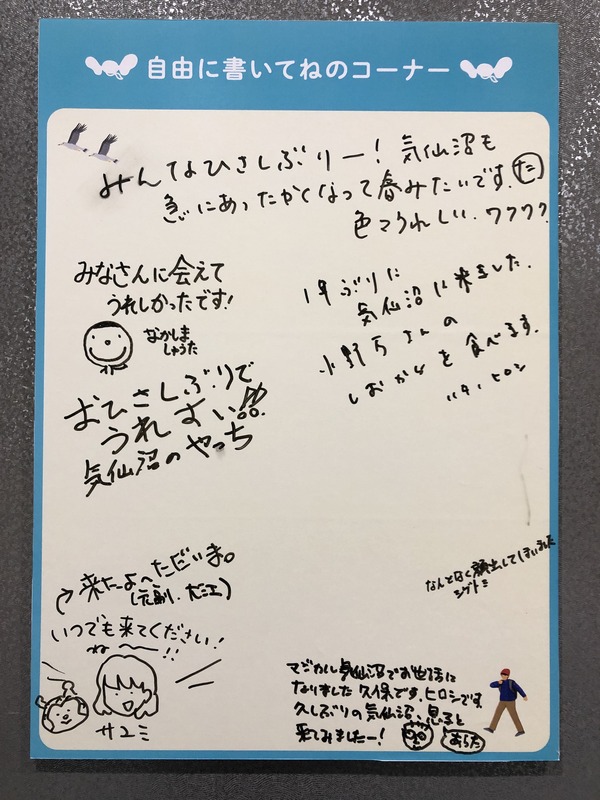 自由に書いてねのコーナー
みんなひさしぶりー！気仙沼も
急にあったかくなって春みたいです。
色々うれしい。ワクワク
みなさんに会えて
うれしかったです！
なかしま
しゅうた
1年ぶりに
気仙沼に来ました。
小野万さんの
しおからを食べます。
ハタノヒロシ
おひさしぶりで
うれすい!!
気仙沼のやっち
来たよ〜ただいま。
いつでも来てください！
ね〜!!
サユミ
なんとなく顔出してしまいました
シゲトミ
マジカル気仙沼でお世話に
なりました久保です。ヒロシです。
久しぶりの気仙沼、
来てみましたー！
あらた